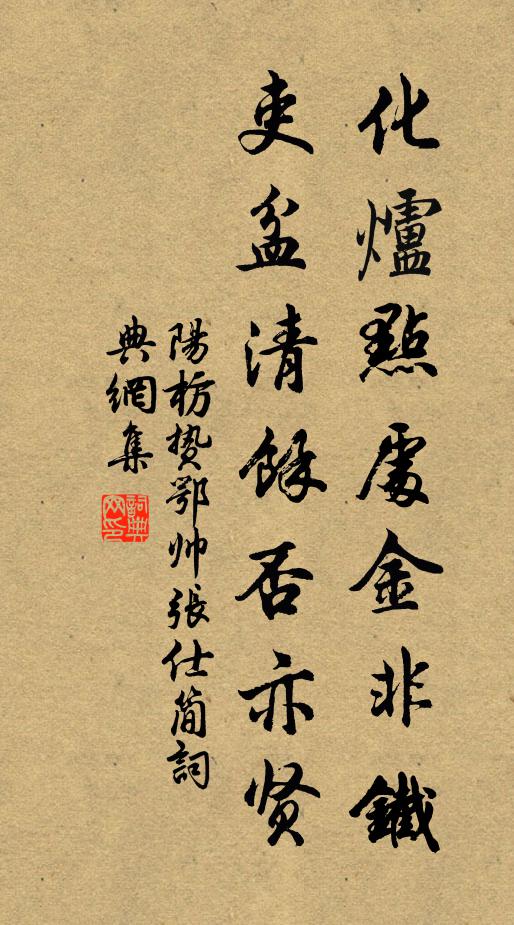 化爐點處金非鐵
吏盆清餘否亦贤
陽枋贽鄂帅張仕簡詞
典網集
詞典網印